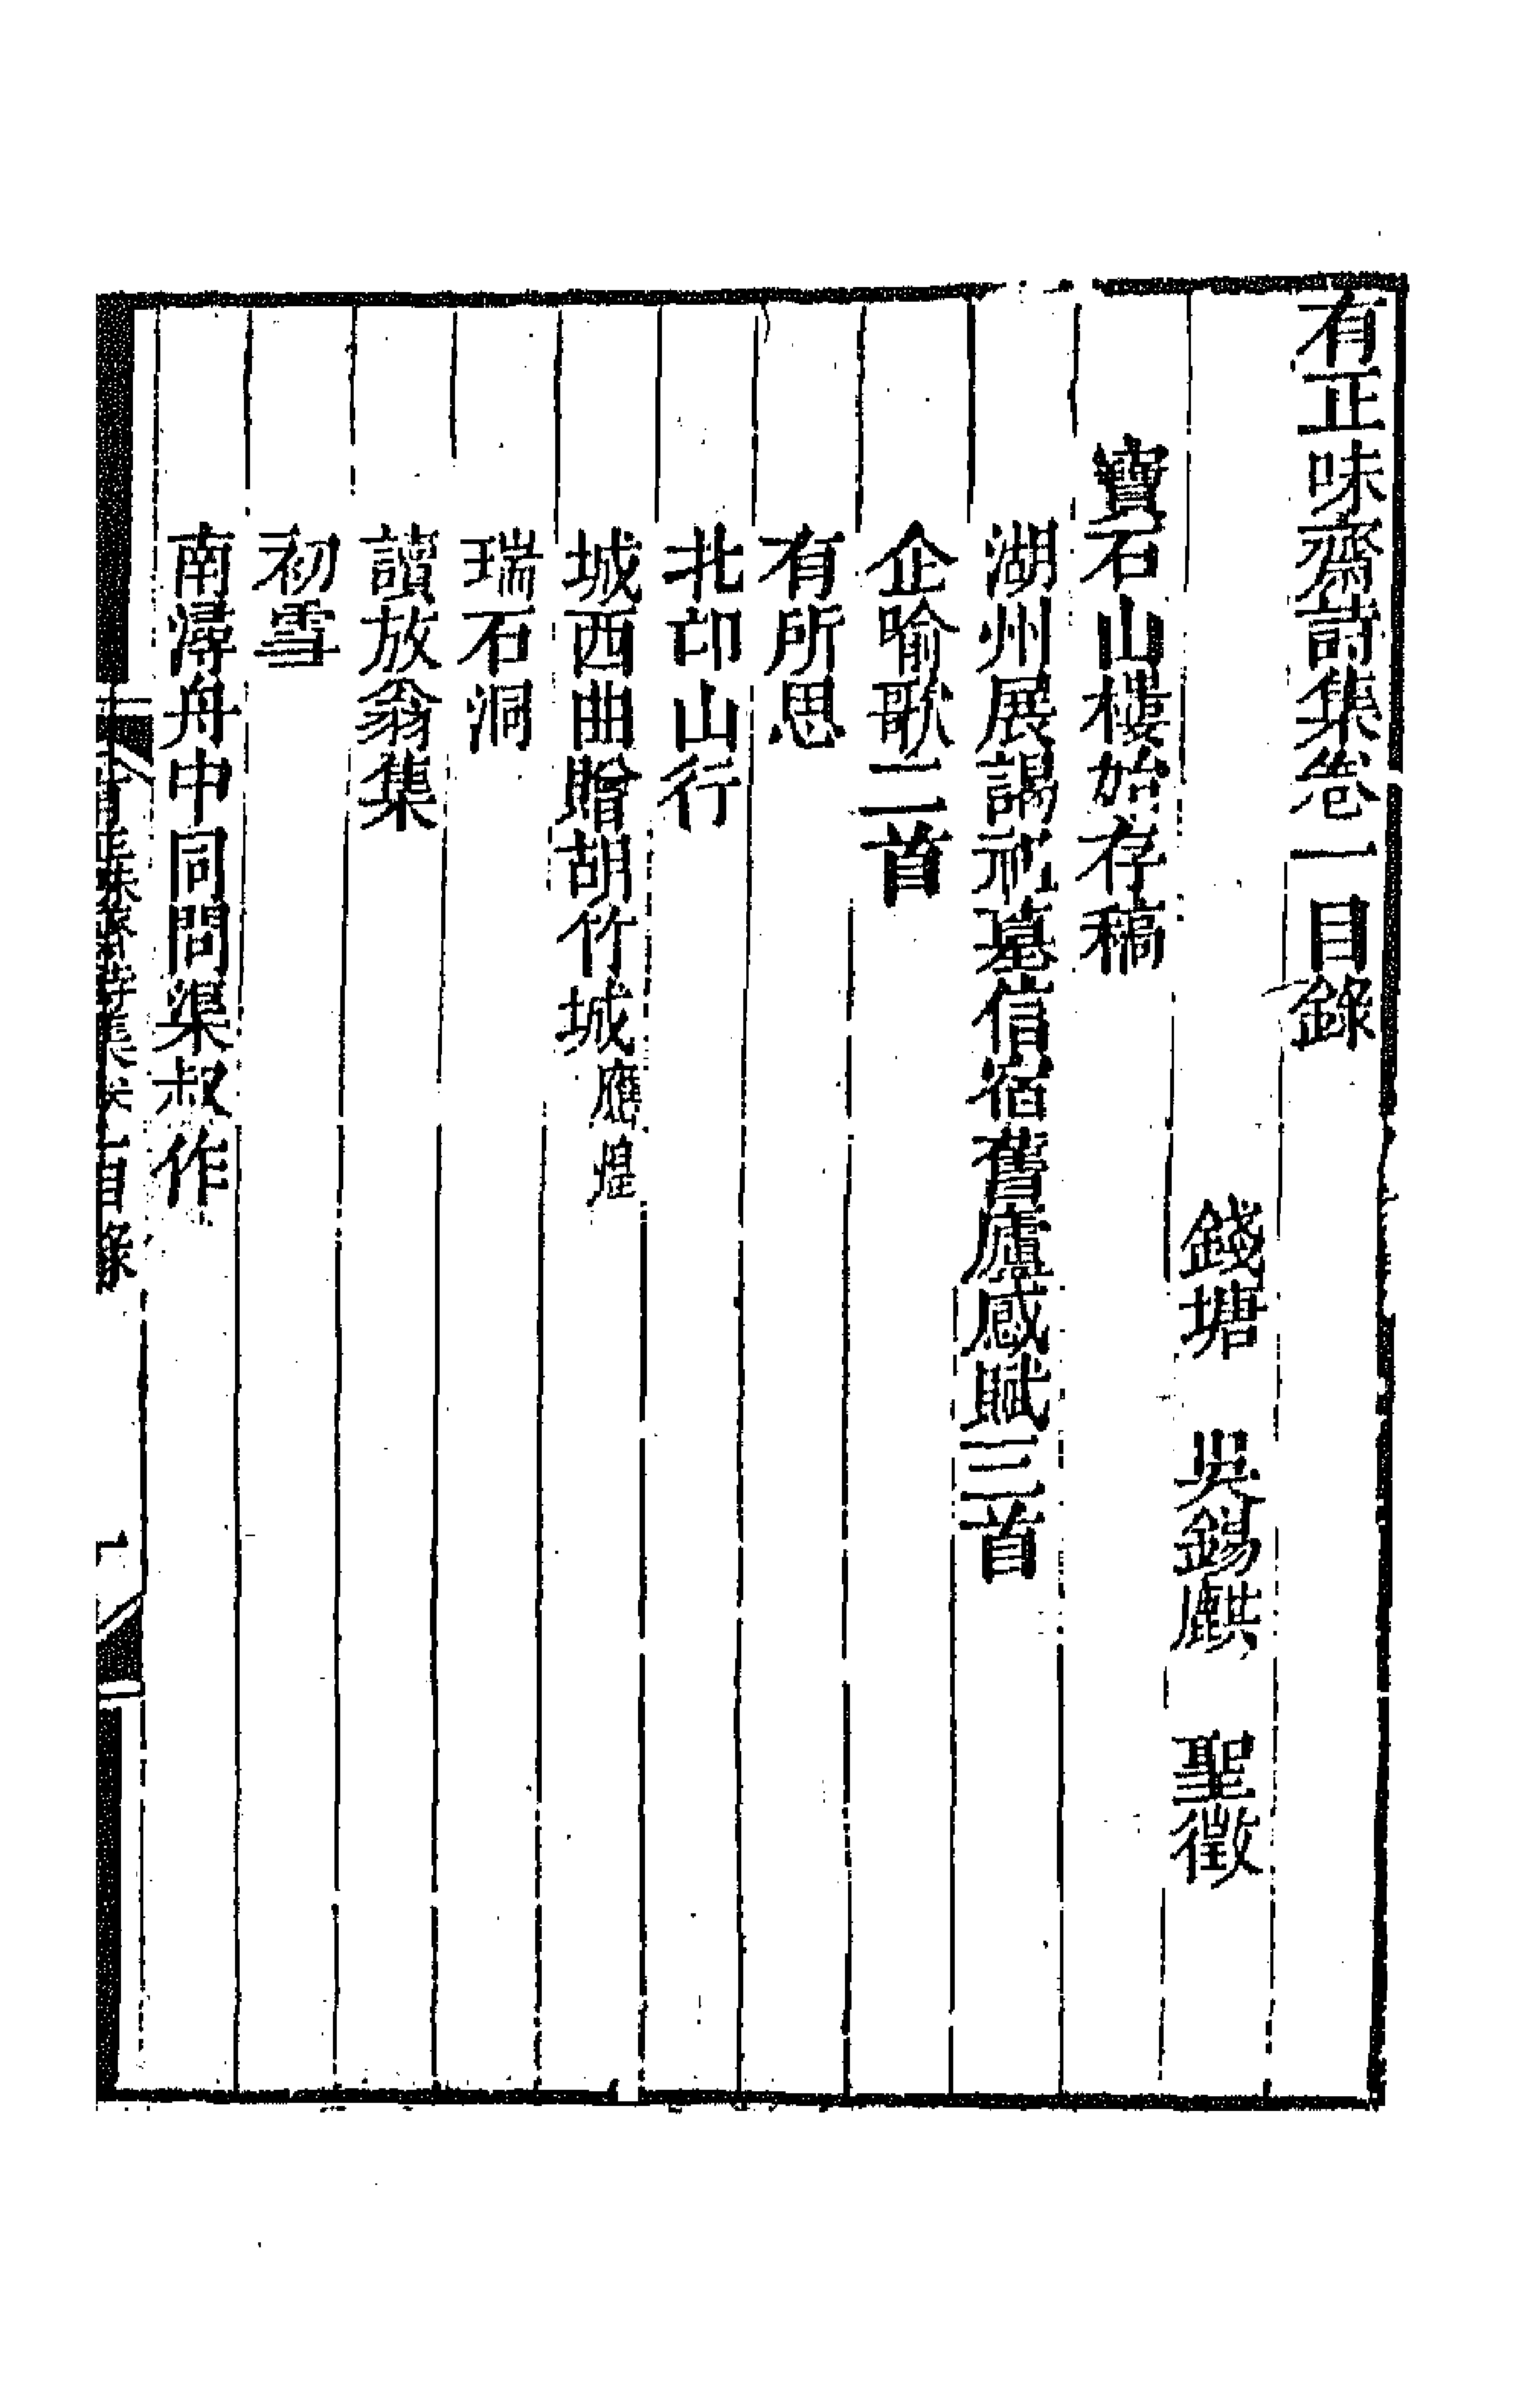 有正味齋詩集卷一目錄
錢塘 吳錫麒 聖徵
寶石山樓始存稿
湖州展謁祖墓信宿舊廬感賦三首
企喻歌二首
有所思
北邙山行
城西曲贈胡竹城應煌
瑞石洞
讀放翁集
初雪
南潯舟中同問渠叔作
有正味齋詩集卷一目錄 一